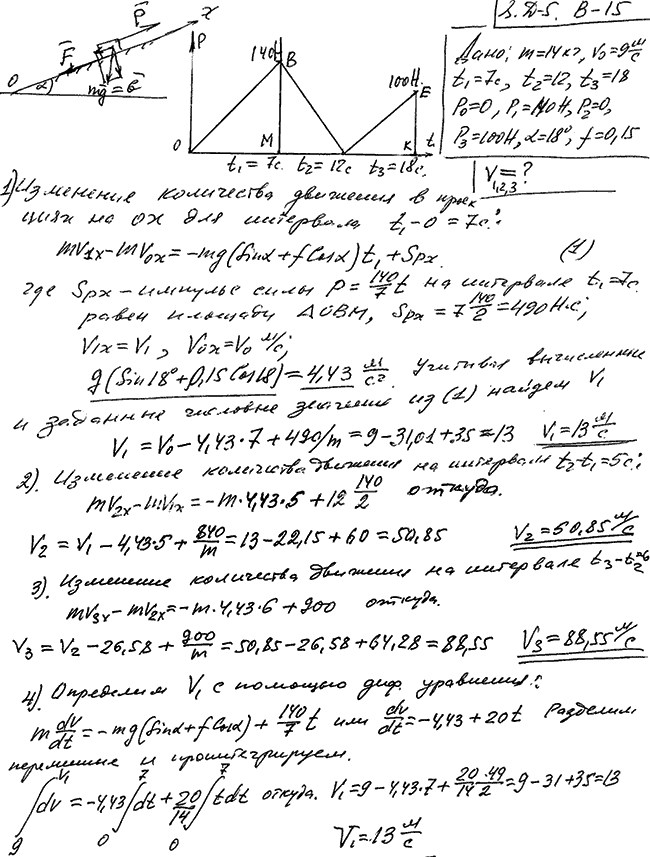 З.Д-5. В-15
Дано: m=14кг, V₀=9 м/с
t₁=7с, t₂=12, t₃=18
P₀=0, P₁=140Н, P₂=0,
P₃=100Н, α=18°, f=0,15
V₁,₂,₃=?
P̄ x F̄ O α mḡ=Ḡ
P 140Н B 100Н. E
O M K t
t₁=7с. t₂=12с t₃=18с.
1) Изменение количества движения в проек
циях на ох для интервала t₁-0=7с.:
mV₁ₓ-mV₀ₓ=-mg(Sinα+fCosα)t₁+Spx (1)
где Spx-импульс силы P=140/7 t на интервале t₁=7с.
равен площади ΔOBM, Spx=7 140/2=490Н·с;
V₁ₓ=V₁, V₀ₓ=V₀ м/с;
g(Sin18°+0,15Cos18)=4,43 м/с². Учитывая вычисленные
и заданные числовые значения из (1) найдем V₁
V₁=V₀-4,43·7+490/m=9-31,01+35=13 V₁=13 м/с
2). Изменение количества движения на интервале t₂-t₁=5с.:
mV₂ₓ-mV₁ₓ=-m·4,43·5+12 140/2 откуда.
V₂=V₁-4,43·5+840/m=13-22,15+60=50,85 V₂=50,85 м/с
3). Изменение количества движения на интервале t₃-t₂=6
mV₃ₓ-mV₂ₓ=-m·4,43·6+900 откуда.
V₃=V₂-26,58+900/m=50,85-26,58+64,28=88,55 V₃=88,55 м/с
4). Определим V₁ с помощью диф. уравнения:
m dv/dt=-mg(Sinα+fCosα)+140/7 t или dv/dt=-4,43+20t Разделим
переменные и проинтегрируем.
∫₉^V₁ dv=-4,43∫₀^7 dt+20/14∫₀^7 tdt откуда. V₁=9-4,43·7+20/14·49/2=9-31+35=13
V₁=13 м/с